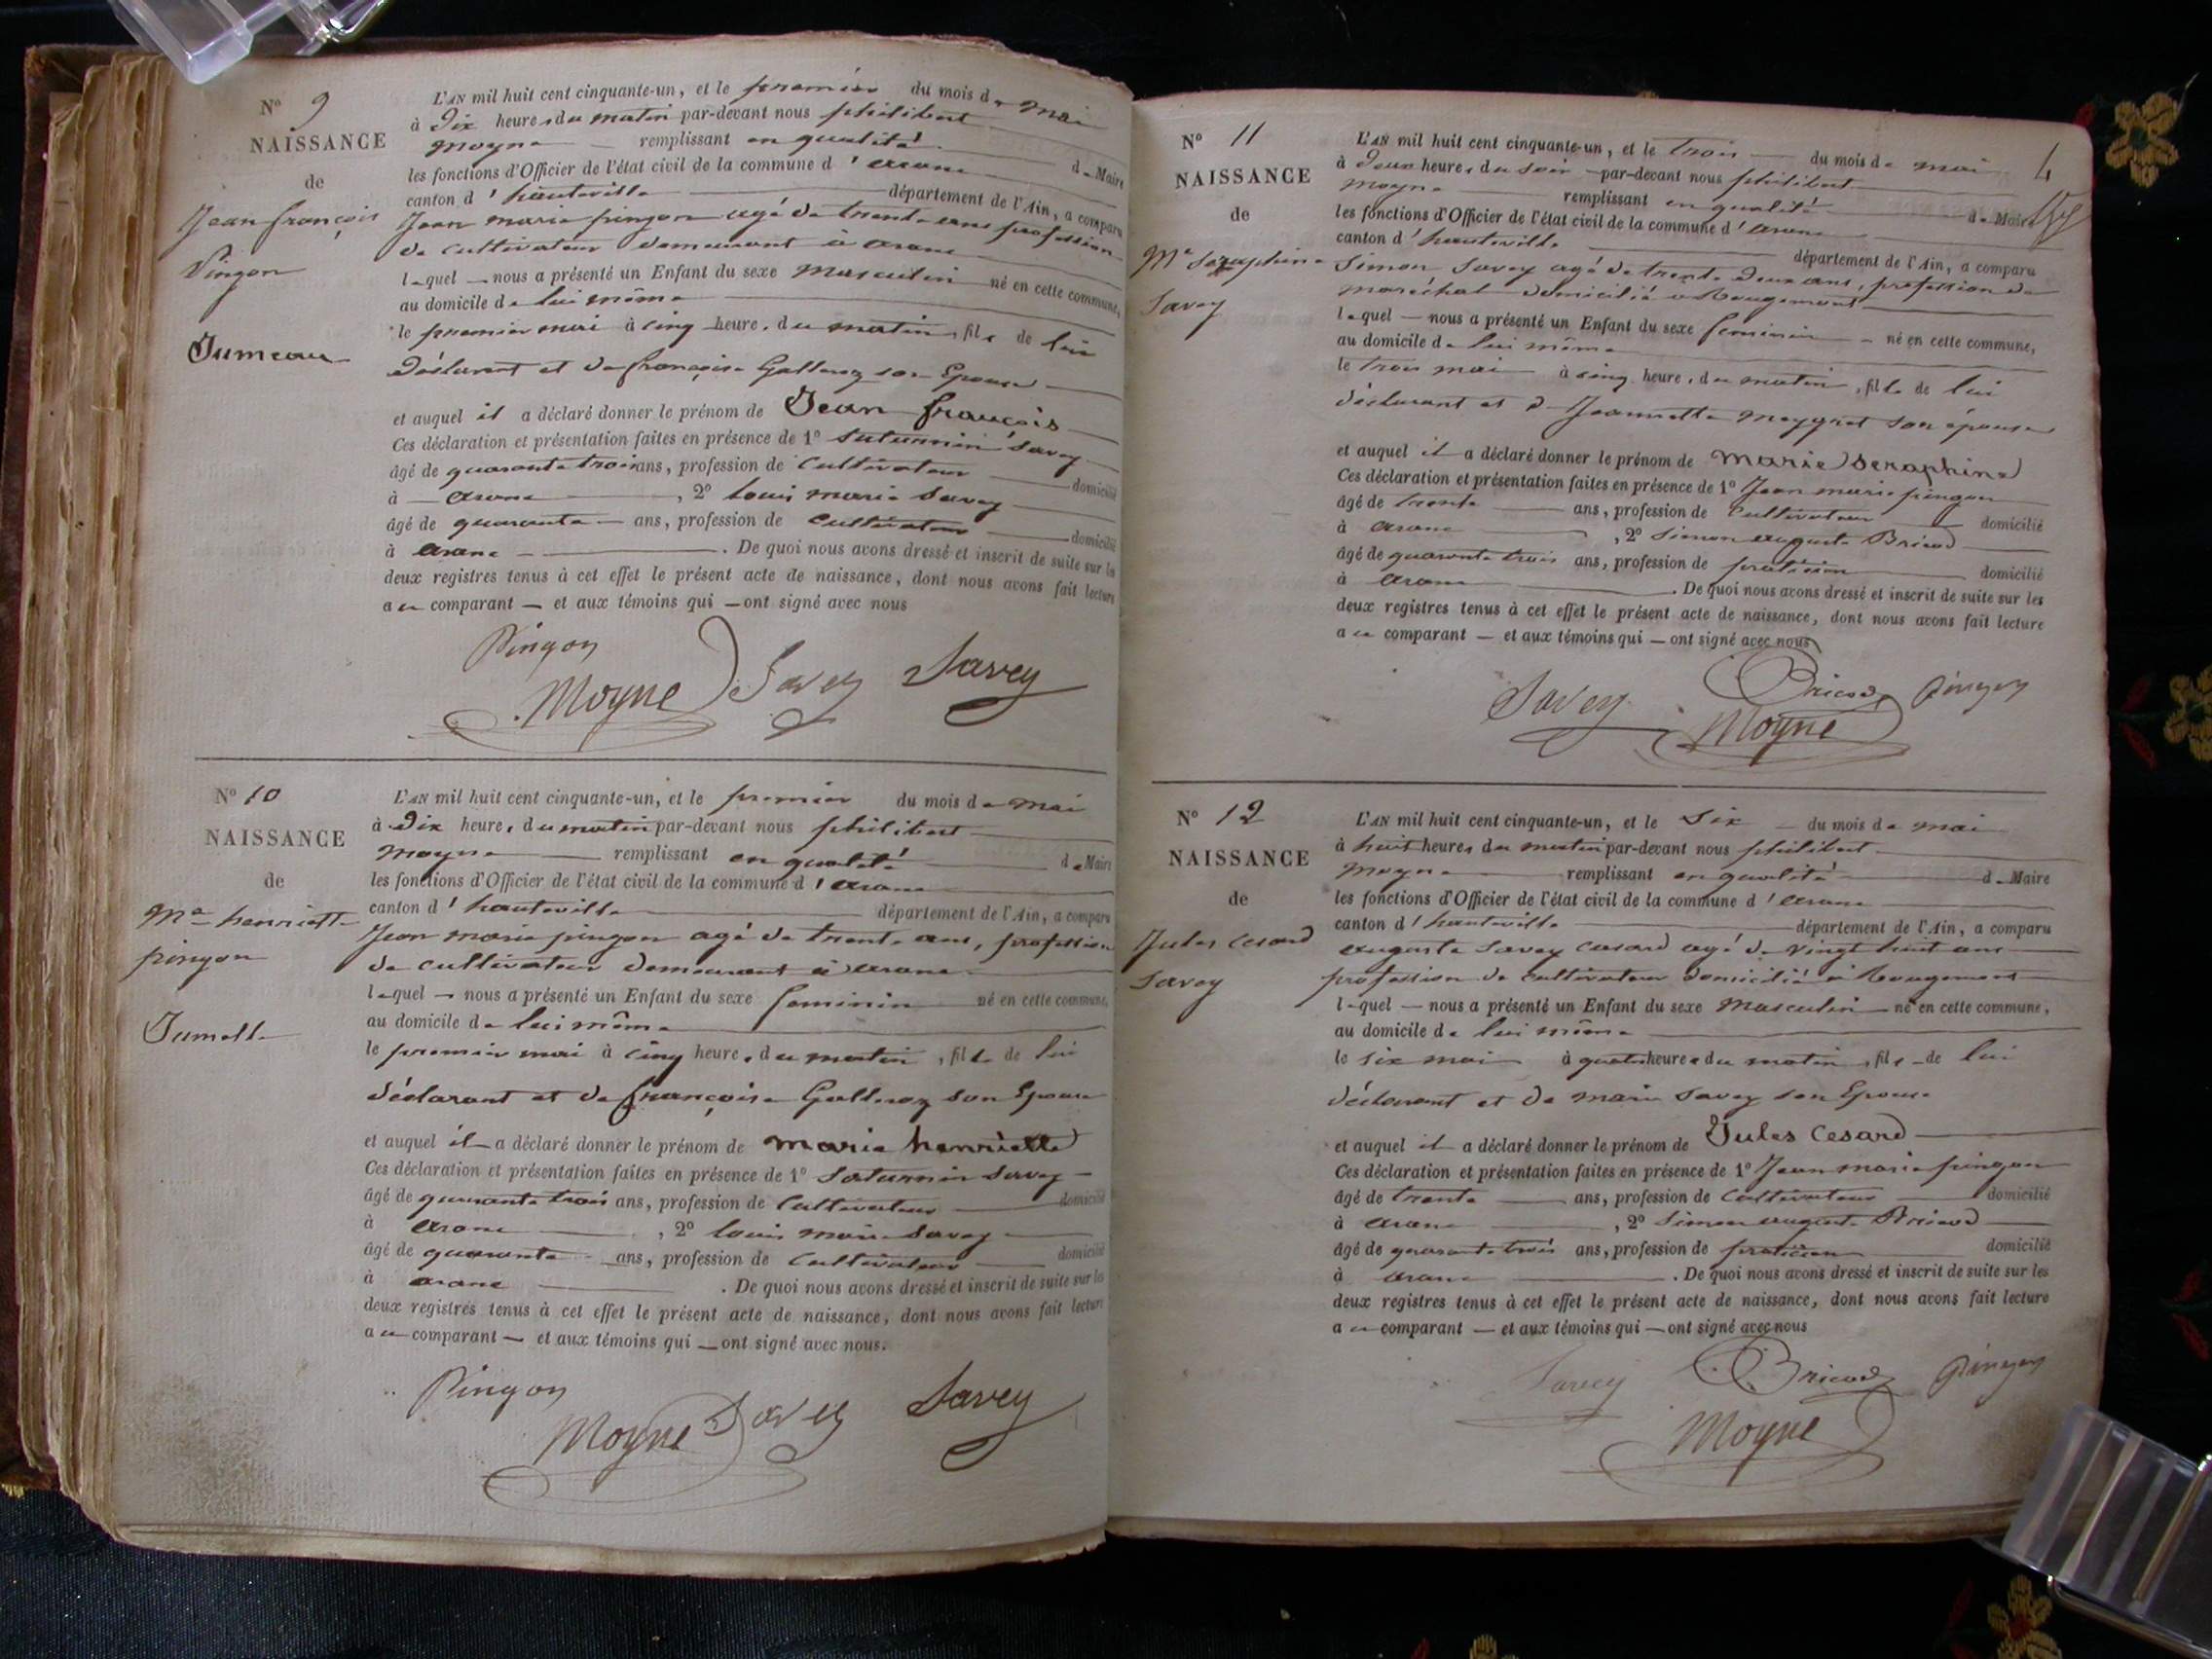 N° 9
NAISSANCE
de
Jean françois
Pingon
Jumeau
L'AN mil huit cent cinquante-un, et le premier du mois de mai
à Dix heures du matin par-devant nous philibert
moyne remplissant en qualité de Maire
les fonctions d'Officier de l'état civil de la commune d'arane
canton d'hauteville département de l'Ain, a comparu
Jean marie pingon agé de trente ans profession
de cultivateur demeurant à arane
lequel nous a présenté un Enfant du sexe Masculin né en cette commune,
au domicile de lui même
le premier mai à cinq heures du matin, fils de lui
déclarant et de françoise Galleray son Epouse
et auquel il a déclaré donner le prénom de Jean françois
Ces déclaration et présentation faites en présence de 1° Saturnin Savey
âgé de quarante trois ans, profession de Cultivateur domicilié
à arane, 2° louis marie Savey
âgé de quarante ans, profession de Cultivateur domicilié
à arane. De quoi nous avons dressé et inscrit de suite sur les
deux registres tenus à cet effet le présent acte de naissance, dont nous avons fait lecture
au comparant et aux témoins qui ont signé avec nous
Pingon
Moyne Savey Savey
N° 10
NAISSANCE
de
Mie henriette
pingon
Jumelle
L'AN mil huit cent cinquante-un, et le premier du mois de mai
à Dix heures du matin par-devant nous philibert
moyne remplissant en qualité de Maire
les fonctions d'Officier de l'état civil de la commune d'arane
canton d'hauteville département de l'Ain, a comparu
Jean marie pingon agé de trente ans, profession
de cultivateur demeurant à arane
lequel nous a présenté un Enfant du sexe feminin né en cette commune,
au domicile de lui même
le premier mai à cinq heures du matin, fille de lui
déclarant et de françoise Galleray son Epouse
et auquel il a déclaré donner le prénom de marie henriette
Ces déclaration et présentation faites en présence de 1° Saturnin Savey
âgé de quarante trois ans, profession de Cultivateur domicilié
à arane, 2° louis marie Savey
âgé de quarante ans, profession de Cultivateur domicilié
à arane. De quoi nous avons dressé et inscrit de suite sur les
deux registres tenus à cet effet le présent acte de naissance, dont nous avons fait lecture
au comparant et aux témoins qui ont signé avec nous.
Pingon
Moyne Savey Savey
4
N° 11
NAISSANCE
de
Mie Seraphine
Savey
L'AN mil huit cent cinquante-un, et le trois du mois de mai
à deux heures du soir par-devant nous philibert
moyne remplissant en qualité de Maire
les fonctions d'Officier de l'état civil de la commune d'arane
canton d'hauteville département de l'Ain, a comparu
Simon Savey agé de trente deux ans, profession de
maréchal domicilié à Rougemont
lequel nous a présenté un Enfant du sexe feminin né en cette commune,
au domicile de lui même
le trois mai à cinq heures du matin, fille de lui
déclarant et de Jeannette meygret son épouse
et auquel il a déclaré donner le prénom de marie Seraphine
Ces déclaration et présentation faites en présence de 1° Jean marie pingon
âgé de trente ans, profession de Cultivateur domicilié
à arane, 2° Simon auguste Bricod
âgé de quarante trois ans, profession de praticien domicilié
à arane. De quoi nous avons dressé et inscrit de suite sur les
deux registres tenus à cet effet le présent acte de naissance, dont nous avons fait lecture
au comparant et aux témoins qui ont signé avec nous
Savey Bricod Pingon
Moyne
N° 12
NAISSANCE
de
Jules Cesard
Savey
L'AN mil huit cent cinquante-un, et le Six du mois de mai
à huit heures du matin par-devant nous philibert
moyne remplissant en qualité de Maire
les fonctions d'Officier de l'état civil de la commune d'arane
canton d'hauteville département de l'Ain, a comparu
auguste Savey Cesard agé de vingt huit ans
profession de cultivateur domicilié à Rougemont
lequel nous a présenté un Enfant du sexe Masculin né en cette commune,
au domicile de lui même
le six mai à quatre heures du matin, fils de lui
déclarant et de marie Savey son Epouse
et auquel il a déclaré donner le prénom de Jules Cesard
Ces déclaration et présentation faites en présence de 1° Jean marie pingon
âgé de trente ans, profession de Cultivateur domicilié
à arane, 2° Simon auguste Bricod
âgé de quarante trois ans, profession de praticien domicilié
à arane. De quoi nous avons dressé et inscrit de suite sur les
deux registres tenus à cet effet le présent acte de naissance, dont nous avons fait lecture
au comparant et aux témoins qui ont signé avec nous
Savey Bricod Pingon
Moyne